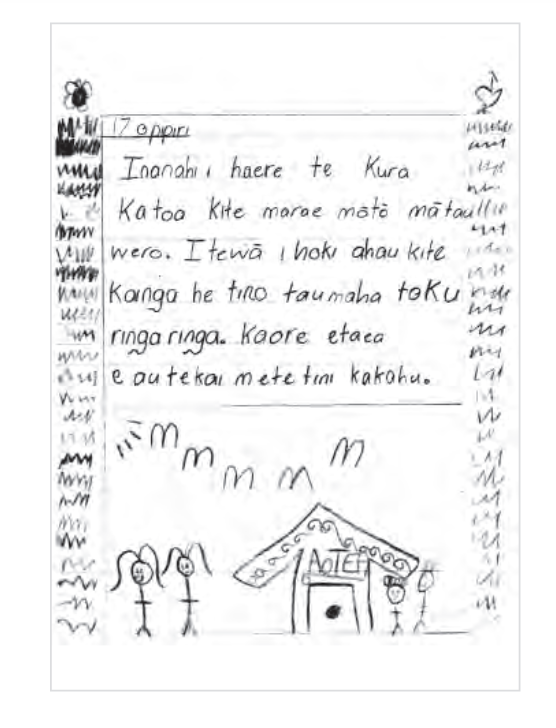 17 o ppiri
Inanahi i haere te Kura
Katoa kite marae mōtō mātau
wero. Itewā i hoki ahau kite
Kainga he tino taumaha toku
ringaringa. Kaore etaea
e au tekai mete tini kakahu.
AOTEA